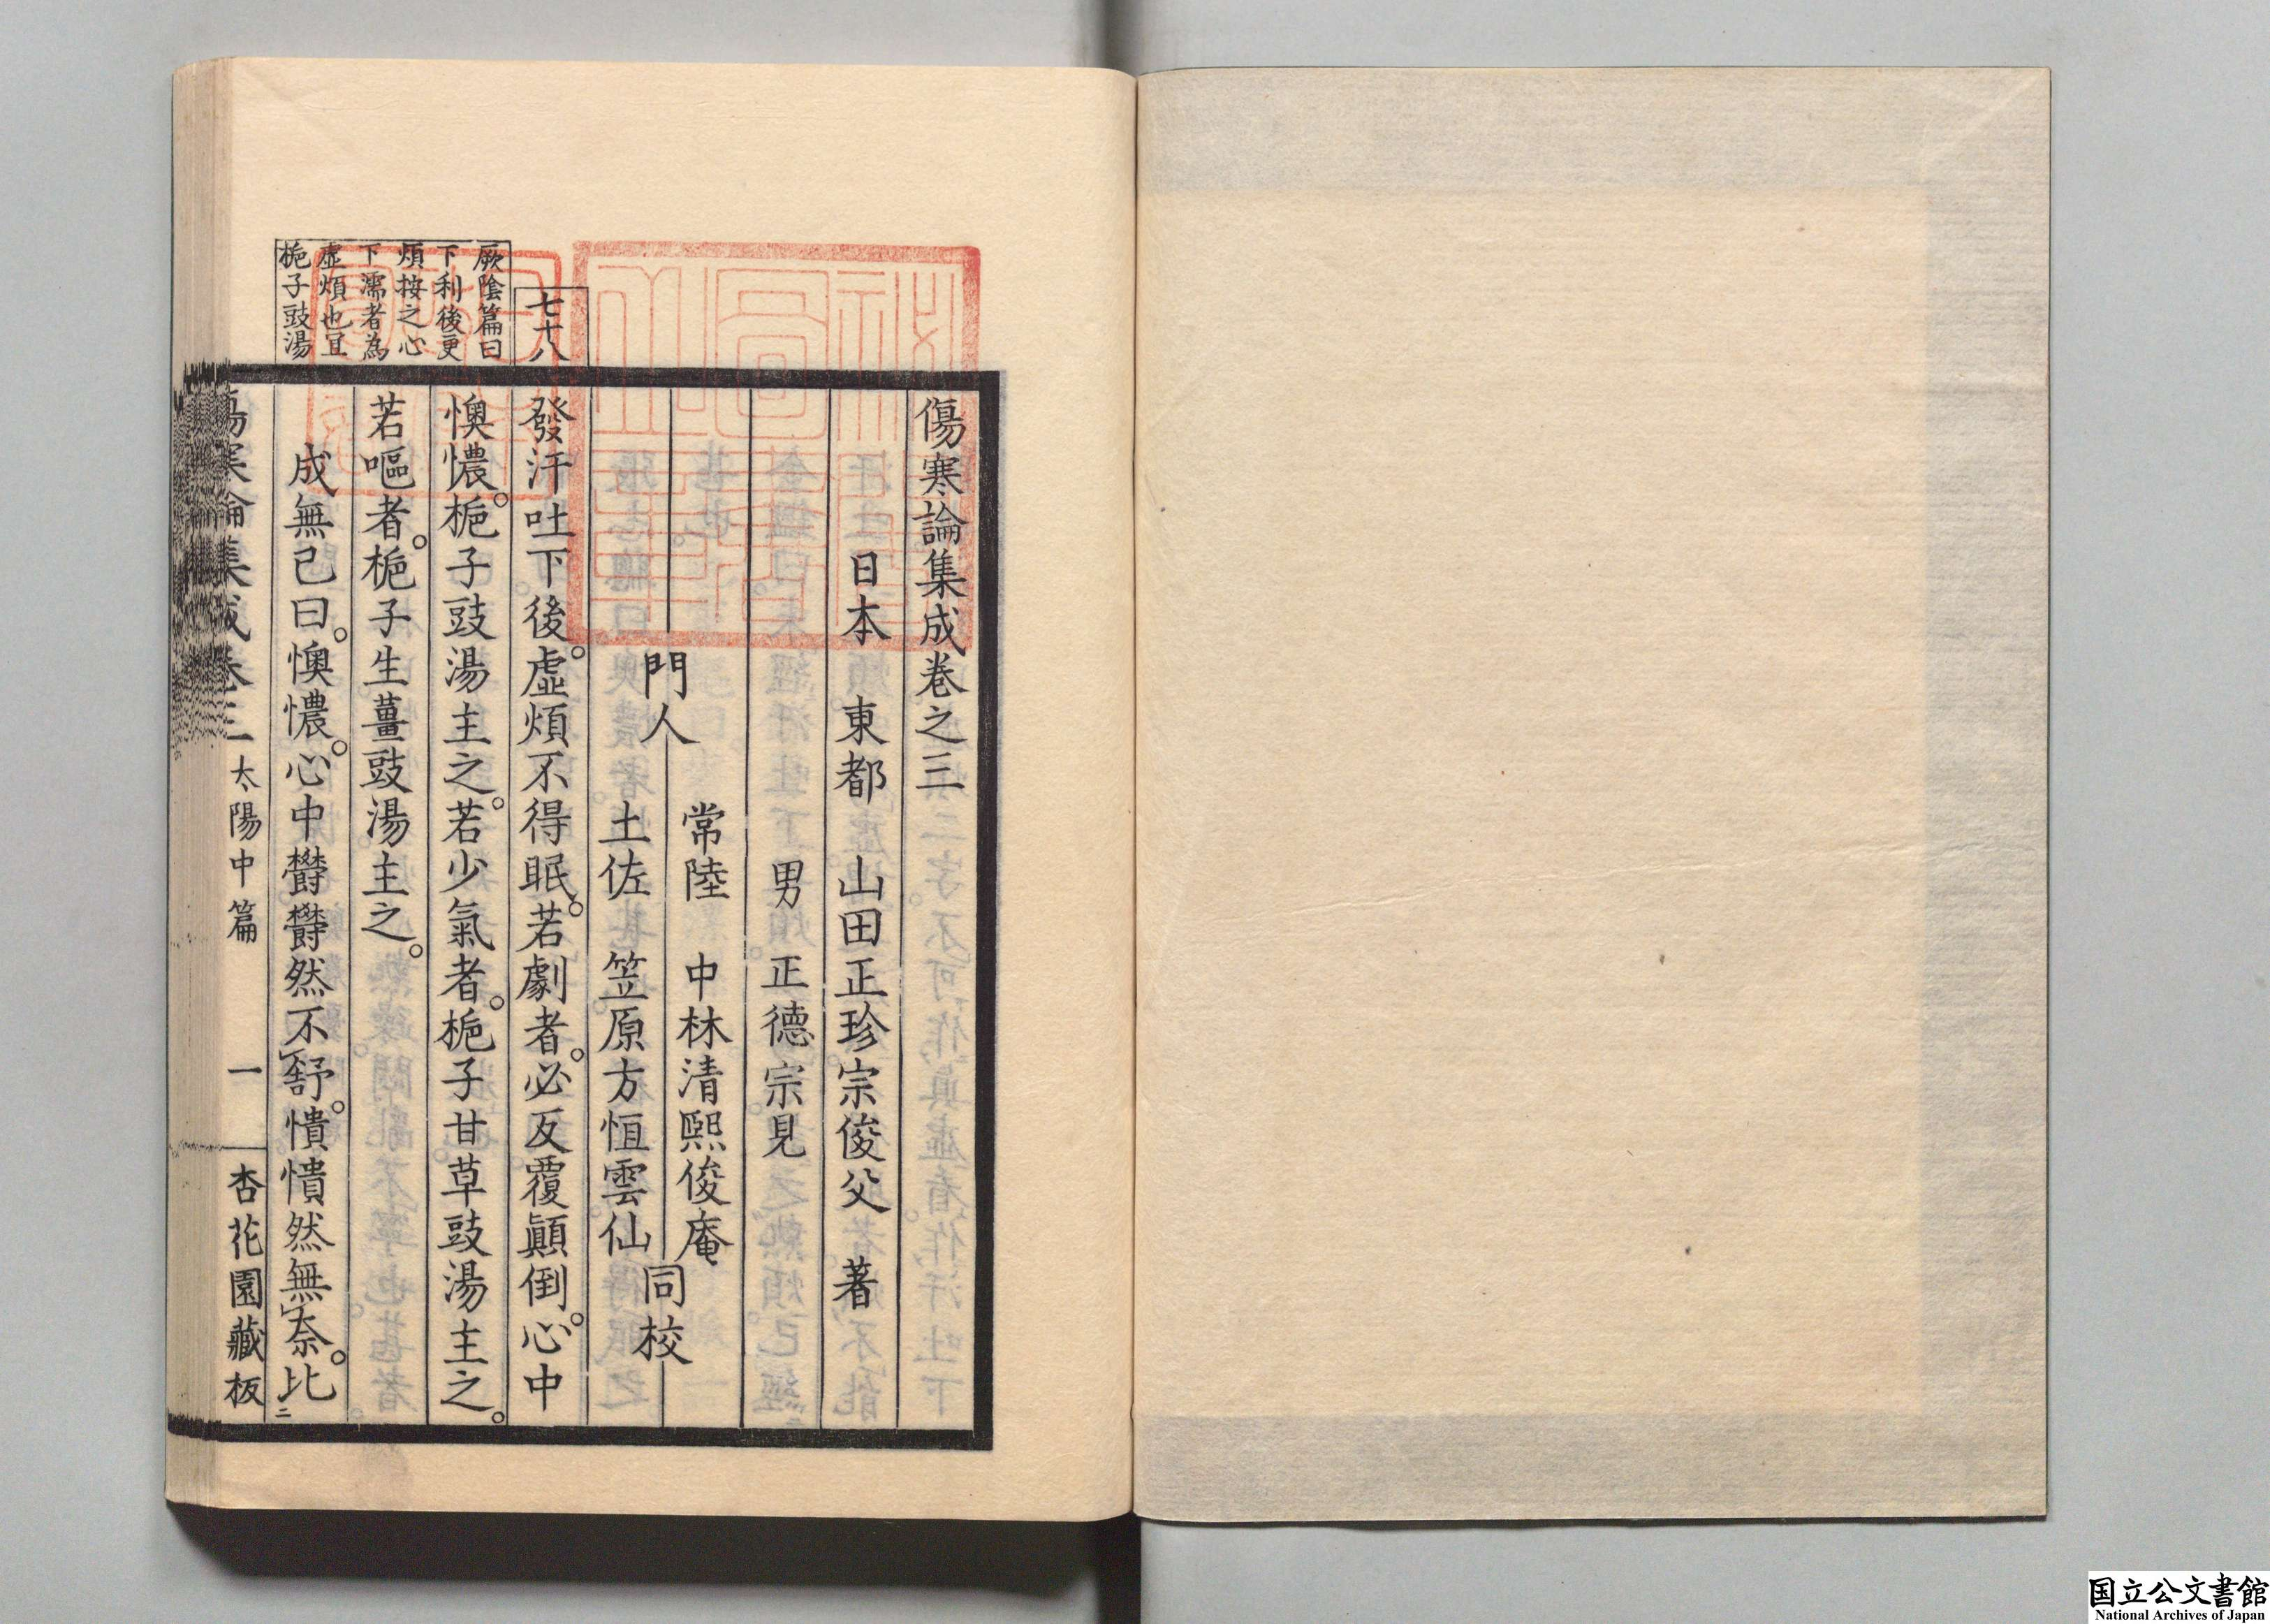 傷寒論集成卷之三
日本 東都 山田正珍宗俊父 著
男 正德宗見
門人 常陸 中林清熙俊庵 同校
土佐 笠原方恒雲仙
七十八
發汗吐下後。虛煩不得眠。若劇者。必反覆顚倒。心中
懊憹。梔子豉湯主之。若少氣者。梔子甘草豉湯主之。
若嘔者。梔子生薑豉湯主之。
厥陰篇曰
下利後更
煩按之心
下濡者為
虛煩也宜
梔子豉湯
成無己曰。懊憹。心中欝欝然不舒。憒憒然無奈。比
傷寒論集成卷三 太陽中篇 一 杏花園藏板
国立公文書館
National Archives of Japan